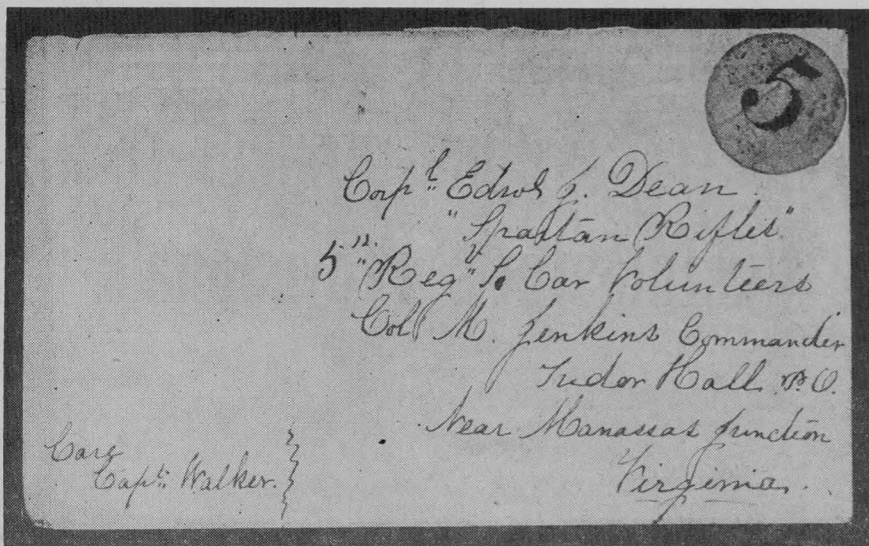 5
Corpl Edwd J. Dean
"Spartan Rifles"
5th Reg So Car Volunteers
Col M. Jenkins Commander
Tudor Hall P.O.
Near Manassas Junction
Virginia.
Care
Capt. Walker.